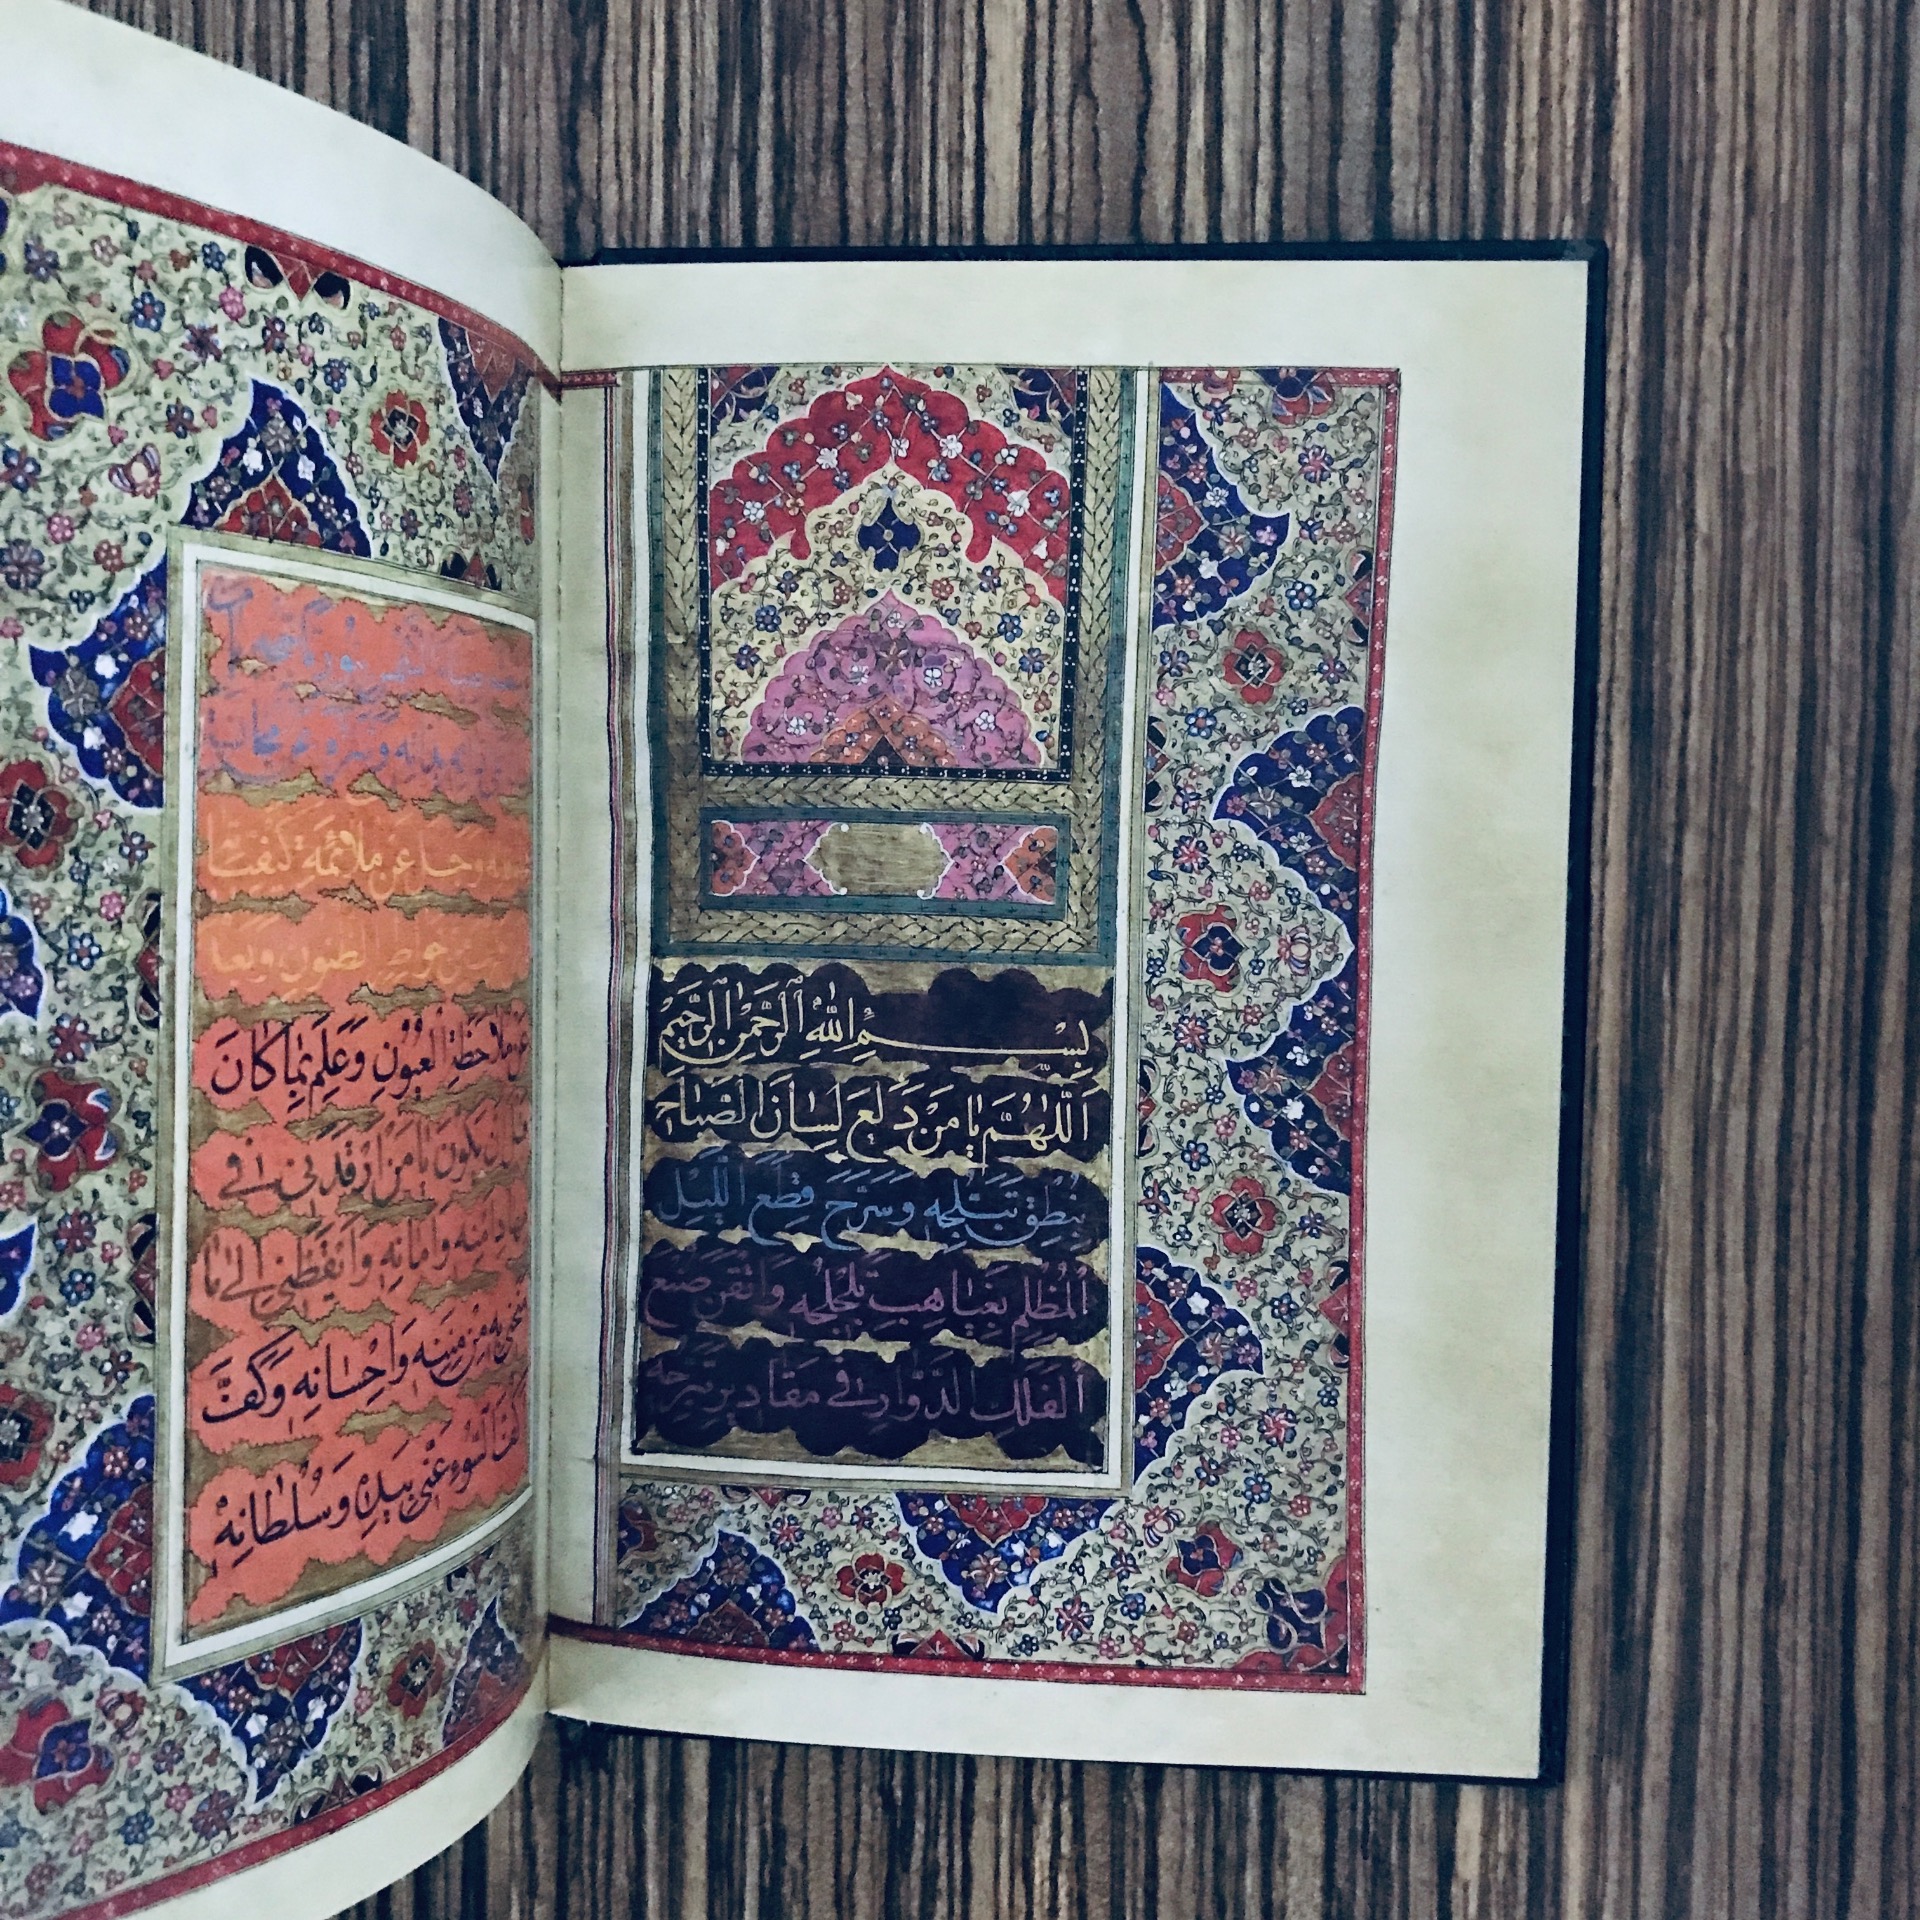 بِسْمِ اللّٰهِ الرَّحْمٰنِ الرَّحِيمِ
اَللّٰهُمَّ يٰا مَنْ دَلَعَ لِسٰانَ الصَّبٰاحِ
بِنُطْقِ تَبَلُّجِهِ وَسَرَّحَ قِطَعَ اللَّيْلِ
الْمُظْلِمِ بِغَيٰاهِبِ تَلَجْلُجِهِ وَاَتْقَنَ صُنْعَ
الْفَلَكِ الدَّوّٰارِ فى مَقٰاديرِ تَبَرُّجِهِ
وَجَلَّ عَنْ مُلائَمَةِ كَيْفِيّٰاتِ
الظُّنُونِ وَبَعُدَ
عَنْ مُلاحَظَةِ الْعُيُونِ وَعَلِمَ بِمٰا كٰانَ
اَنْ يَكُونَ يٰا مَنْ اَرْقَدَنى فى
مِهٰادِ اَمْنِهِ وَاَمٰانِهِ وَاَيْقَظَنى اِلىٰ مٰا
مَنَحَنى بِهِ مِنْ مِنَنِهِ وَاِحْسٰانِهِ وَكَفَّ
اَكُفَّ السُّوءِ عَنّى بِيَدِهِ وَسُلْطٰانِهِ